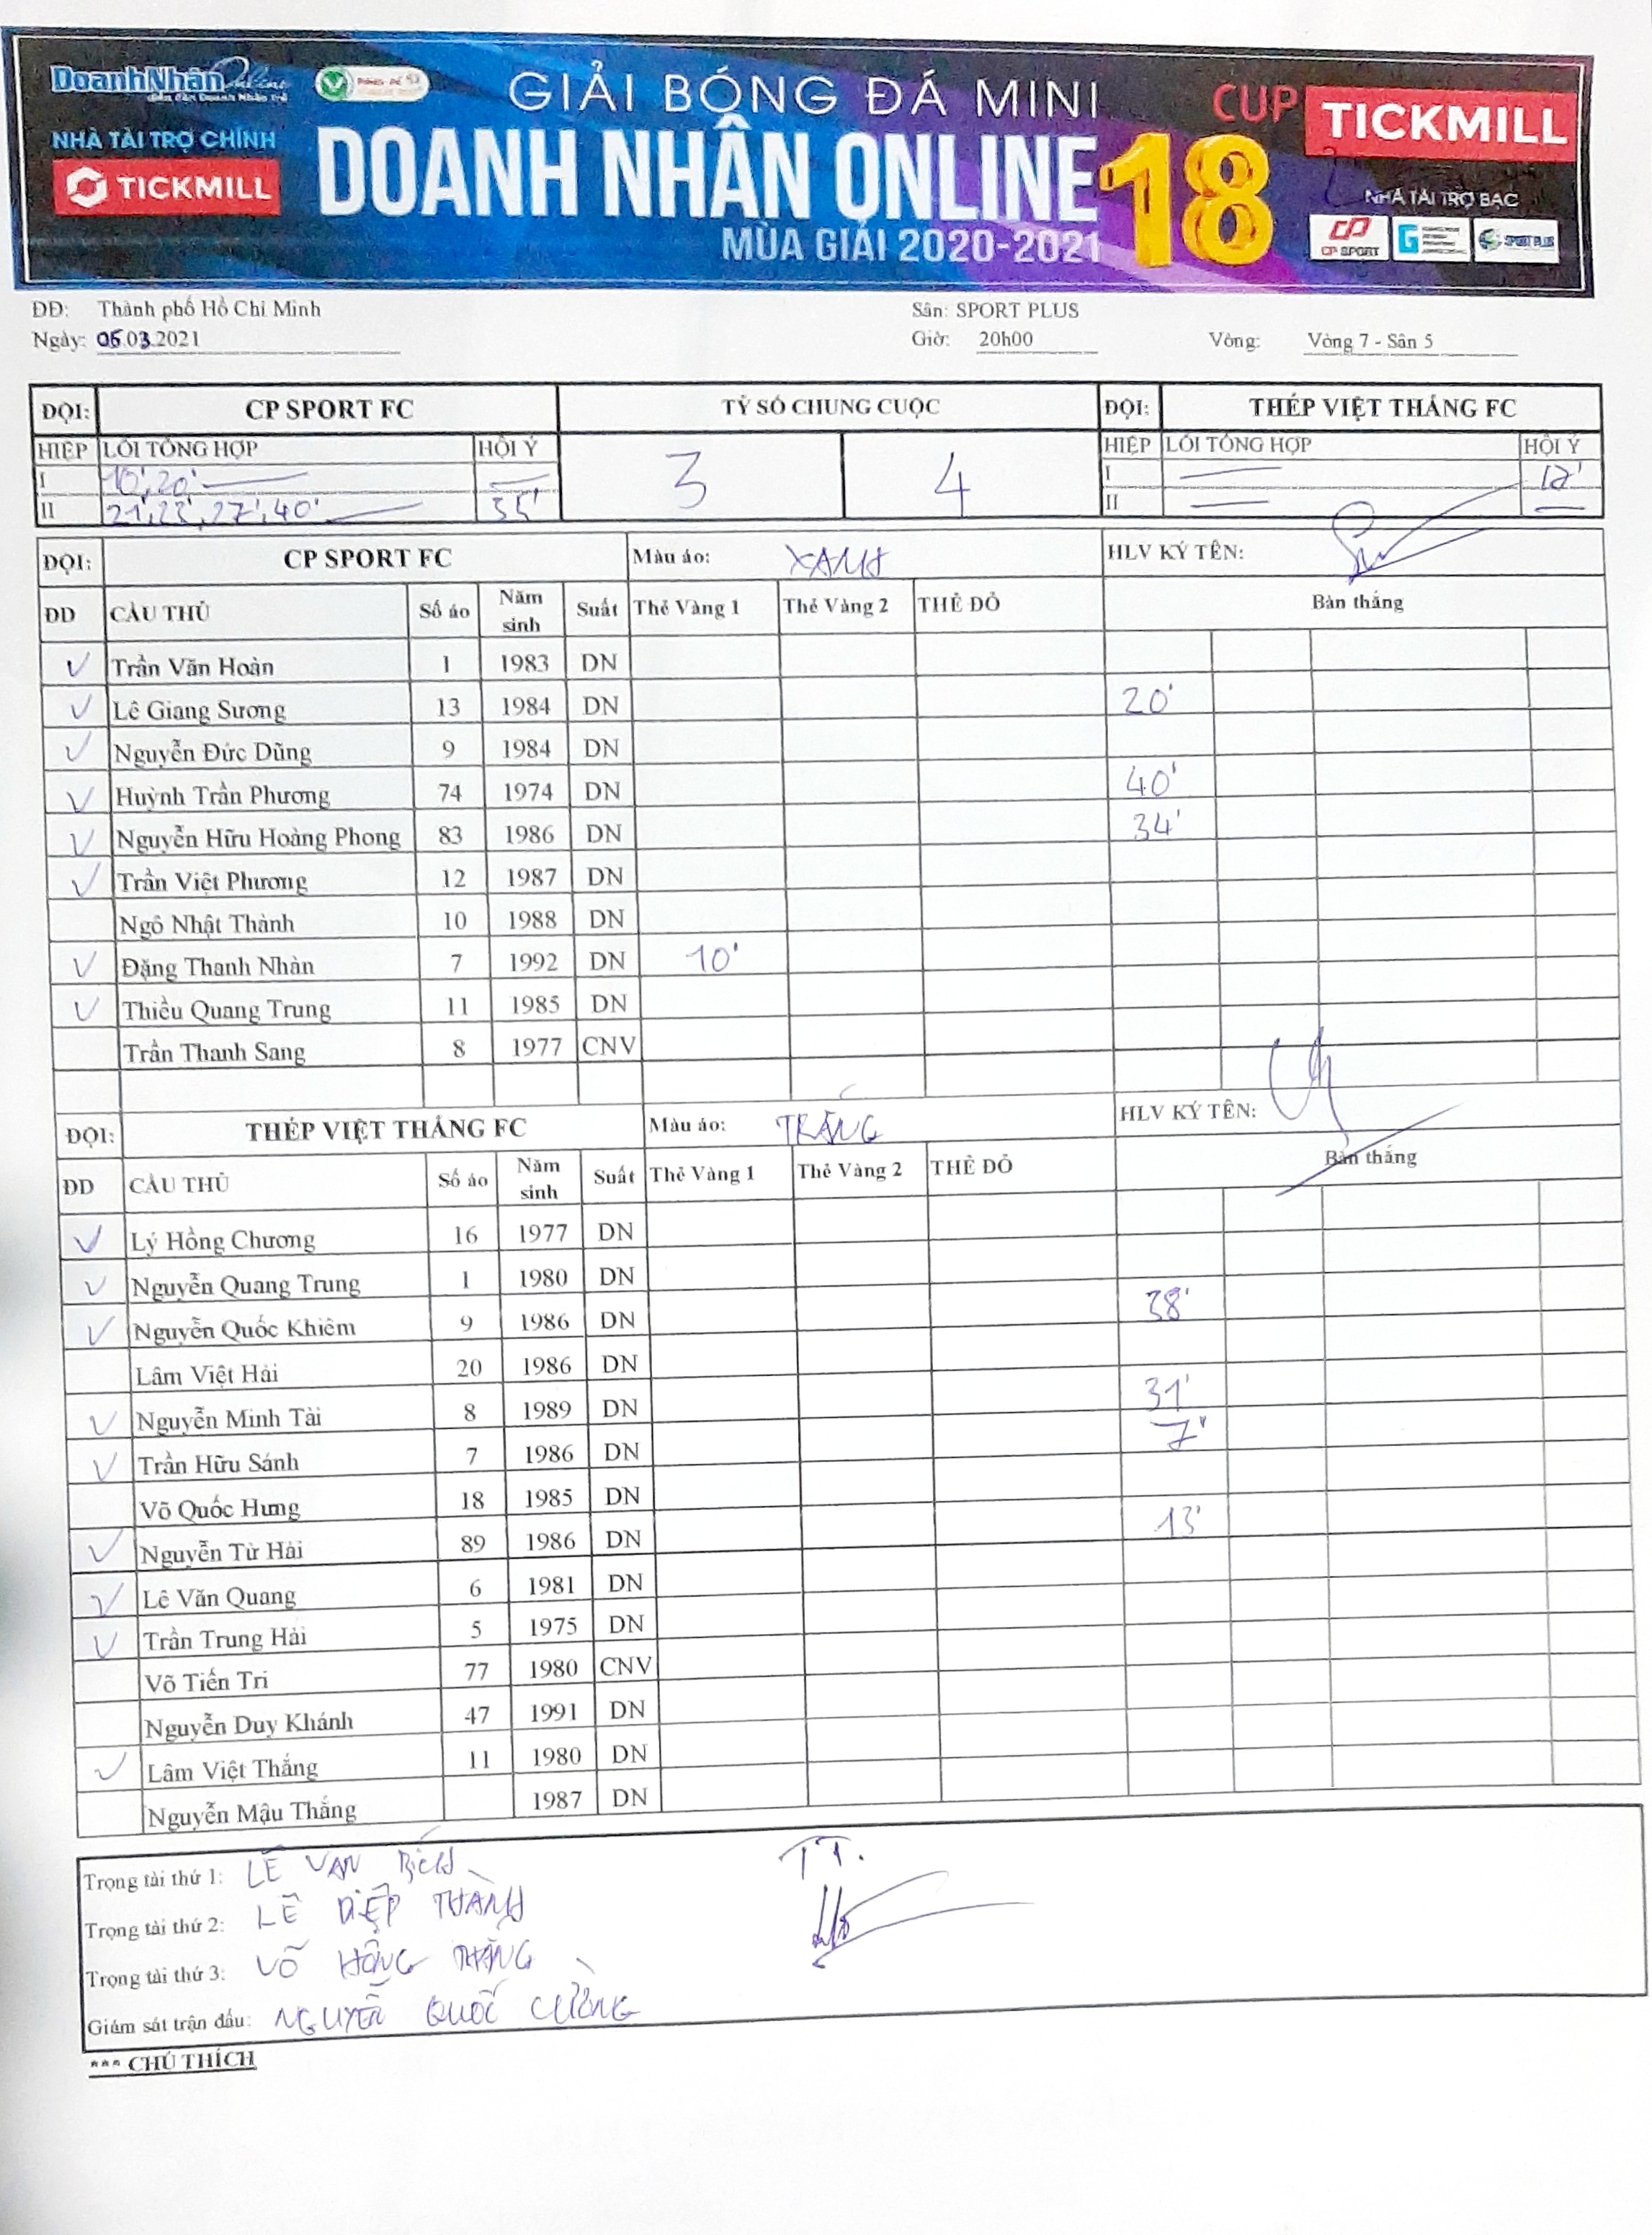 DoanhNhân Online
GIẢI BÓNG ĐÁ MINI
CUP TICKMILL
NHÀ TÀI TRỢ CHÍNH
TICKMILL
DOANH NHÂN ONLINE 18
MÙA GIẢI 2020-2021
NHÀ TÀI TRỢ BẠC
CP SPORT SPORT PLUS
ĐĐ: Thành phố Hồ Chí Minh Sân: SPORT PLUS
Ngày: 05.03.2021 Giờ: 20h00 Vòng: Vòng 7 - Sân 5
ĐỘI: CP SPORT FC TỶ SỐ CHUNG CUỘC ĐỘI: THÉP VIỆT THẮNG FC
HIỆP LỖI TỔNG HỢP HỘI Ý 3 4 HIỆP LỖI TỔNG HỢP HỘI Ý
I 10', 20' I 12'
II 21', 22', 27', 40' 35' II
ĐỘI: CP SPORT FC Màu áo: XANH HLV KÝ TÊN:
ĐD CẦU THỦ Số áo Năm sinh Suất Thẻ Vàng 1 Thẻ Vàng 2 THẺ ĐỎ Bàn thắng
Trần Văn Hoàn 1 1983 DN
Lê Giang Sương 13 1984 DN 20'
Nguyễn Đức Dũng 9 1984 DN
Huỳnh Trần Phương 74 1974 DN 40'
Nguyễn Hữu Hoàng Phong 83 1986 DN 34'
Trần Việt Phương 12 1987 DN
Ngô Nhật Thành 10 1988 DN
Đặng Thanh Nhàn 7 1992 DN 10'
Thiều Quang Trung 11 1985 DN
Trần Thanh Sang 8 1977 CNV
ĐỘI: THÉP VIỆT THẮNG FC Màu áo: TRẮNG HLV KÝ TÊN:
ĐD CẦU THỦ Số áo Năm sinh Suất Thẻ Vàng 1 Thẻ Vàng 2 THẺ ĐỎ Bàn thắng
Lý Hồng Chương 16 1977 DN
Nguyễn Quang Trung 1 1980 DN
Nguyễn Quốc Khiêm 9 1986 DN 38'
Lâm Việt Hải 20 1986 DN
Nguyễn Minh Tài 8 1989 DN 31'
Trần Hữu Sánh 7 1986 DN 7'
Võ Quốc Hưng 18 1985 DN
Nguyễn Từ Hải 89 1986 DN 13'
Lê Văn Quang 6 1981 DN
Trần Trung Hải 5 1975 DN
Võ Tiến Trí 77 1980 CNV
Nguyễn Duy Khánh 47 1991 DN
Lâm Việt Thắng 11 1980 DN
Nguyễn Mậu Thắng 1987 DN
Trọng tài thứ 1: LÊ VĂN BÍCH TT.
Trọng tài thứ 2: LÊ DIỆP THÀNH
Trọng tài thứ 3: VÕ HỒNG THẮNG
Giám sát trận đấu: NGUYỄN QUỐC CƯỜNG
*** CHÚ THÍCH